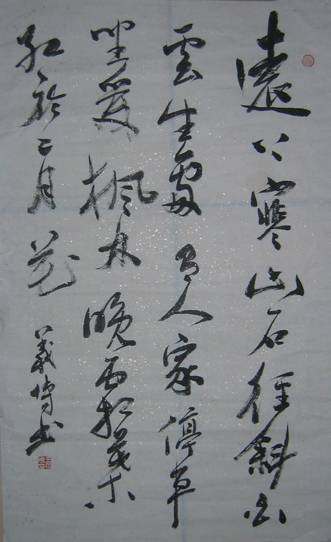 遠上寒山石徑斜白
雲生處有人家停車
坐愛楓林晚霜葉
紅於二月花 義博書